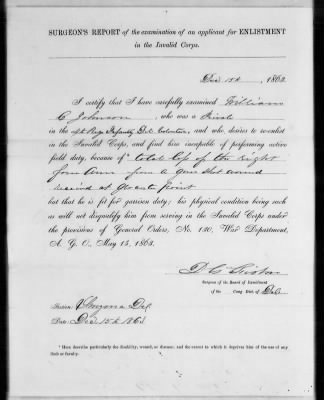 SURGEON'S REPORT of the examination of an applicant for ENLISTMENT
in the Invalid Corps.
Dec 15th, 1863.
I certify that I have carefully examined William
C Johnson, who was a Private
in the Regt Infantry Del Volunteers, and who desires to re-enlist
in the Invalid Corps, and find him incapable of performing active
field duty, because of * total loss of the right
fore Arm from a Gun Shot wound
received at Point
but that he is fit for garrison duty; his physical condition being such
as will not disqualify him from serving in the Invalid Corps under
the provisions of General Orders, No. 130, War Department,
A. G. O., May 15, 1863.
D C
Surgeon of the Board of Enrollment
of the Cong. Dist. of Del
Station: Smyrna Del
Date: Dec 15th 1863
* Here describe particularly the disability, wound, or disease, and the extent to which it deprives him of the use of any
limb or faculty.